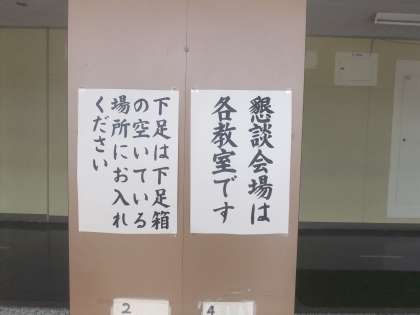 懇談会場は
各教室です
下足は下足箱
の空いている
場所にお入れ
ください
2
4